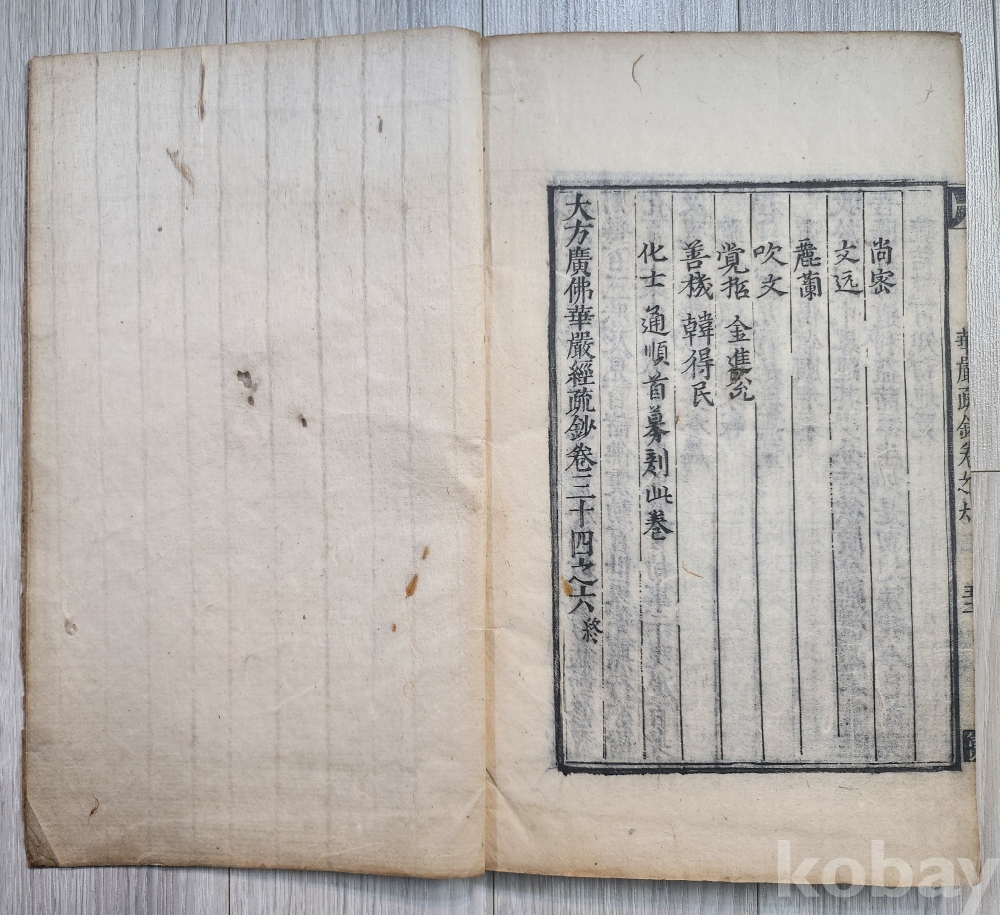 尚密
文远
麁蘭
吹文
覺
金
善機 韓得民
化士 通順首募刻此卷
大方廣佛華嚴經疏鈔卷三十四之六 終
華嚴疏鈔卷
kobay